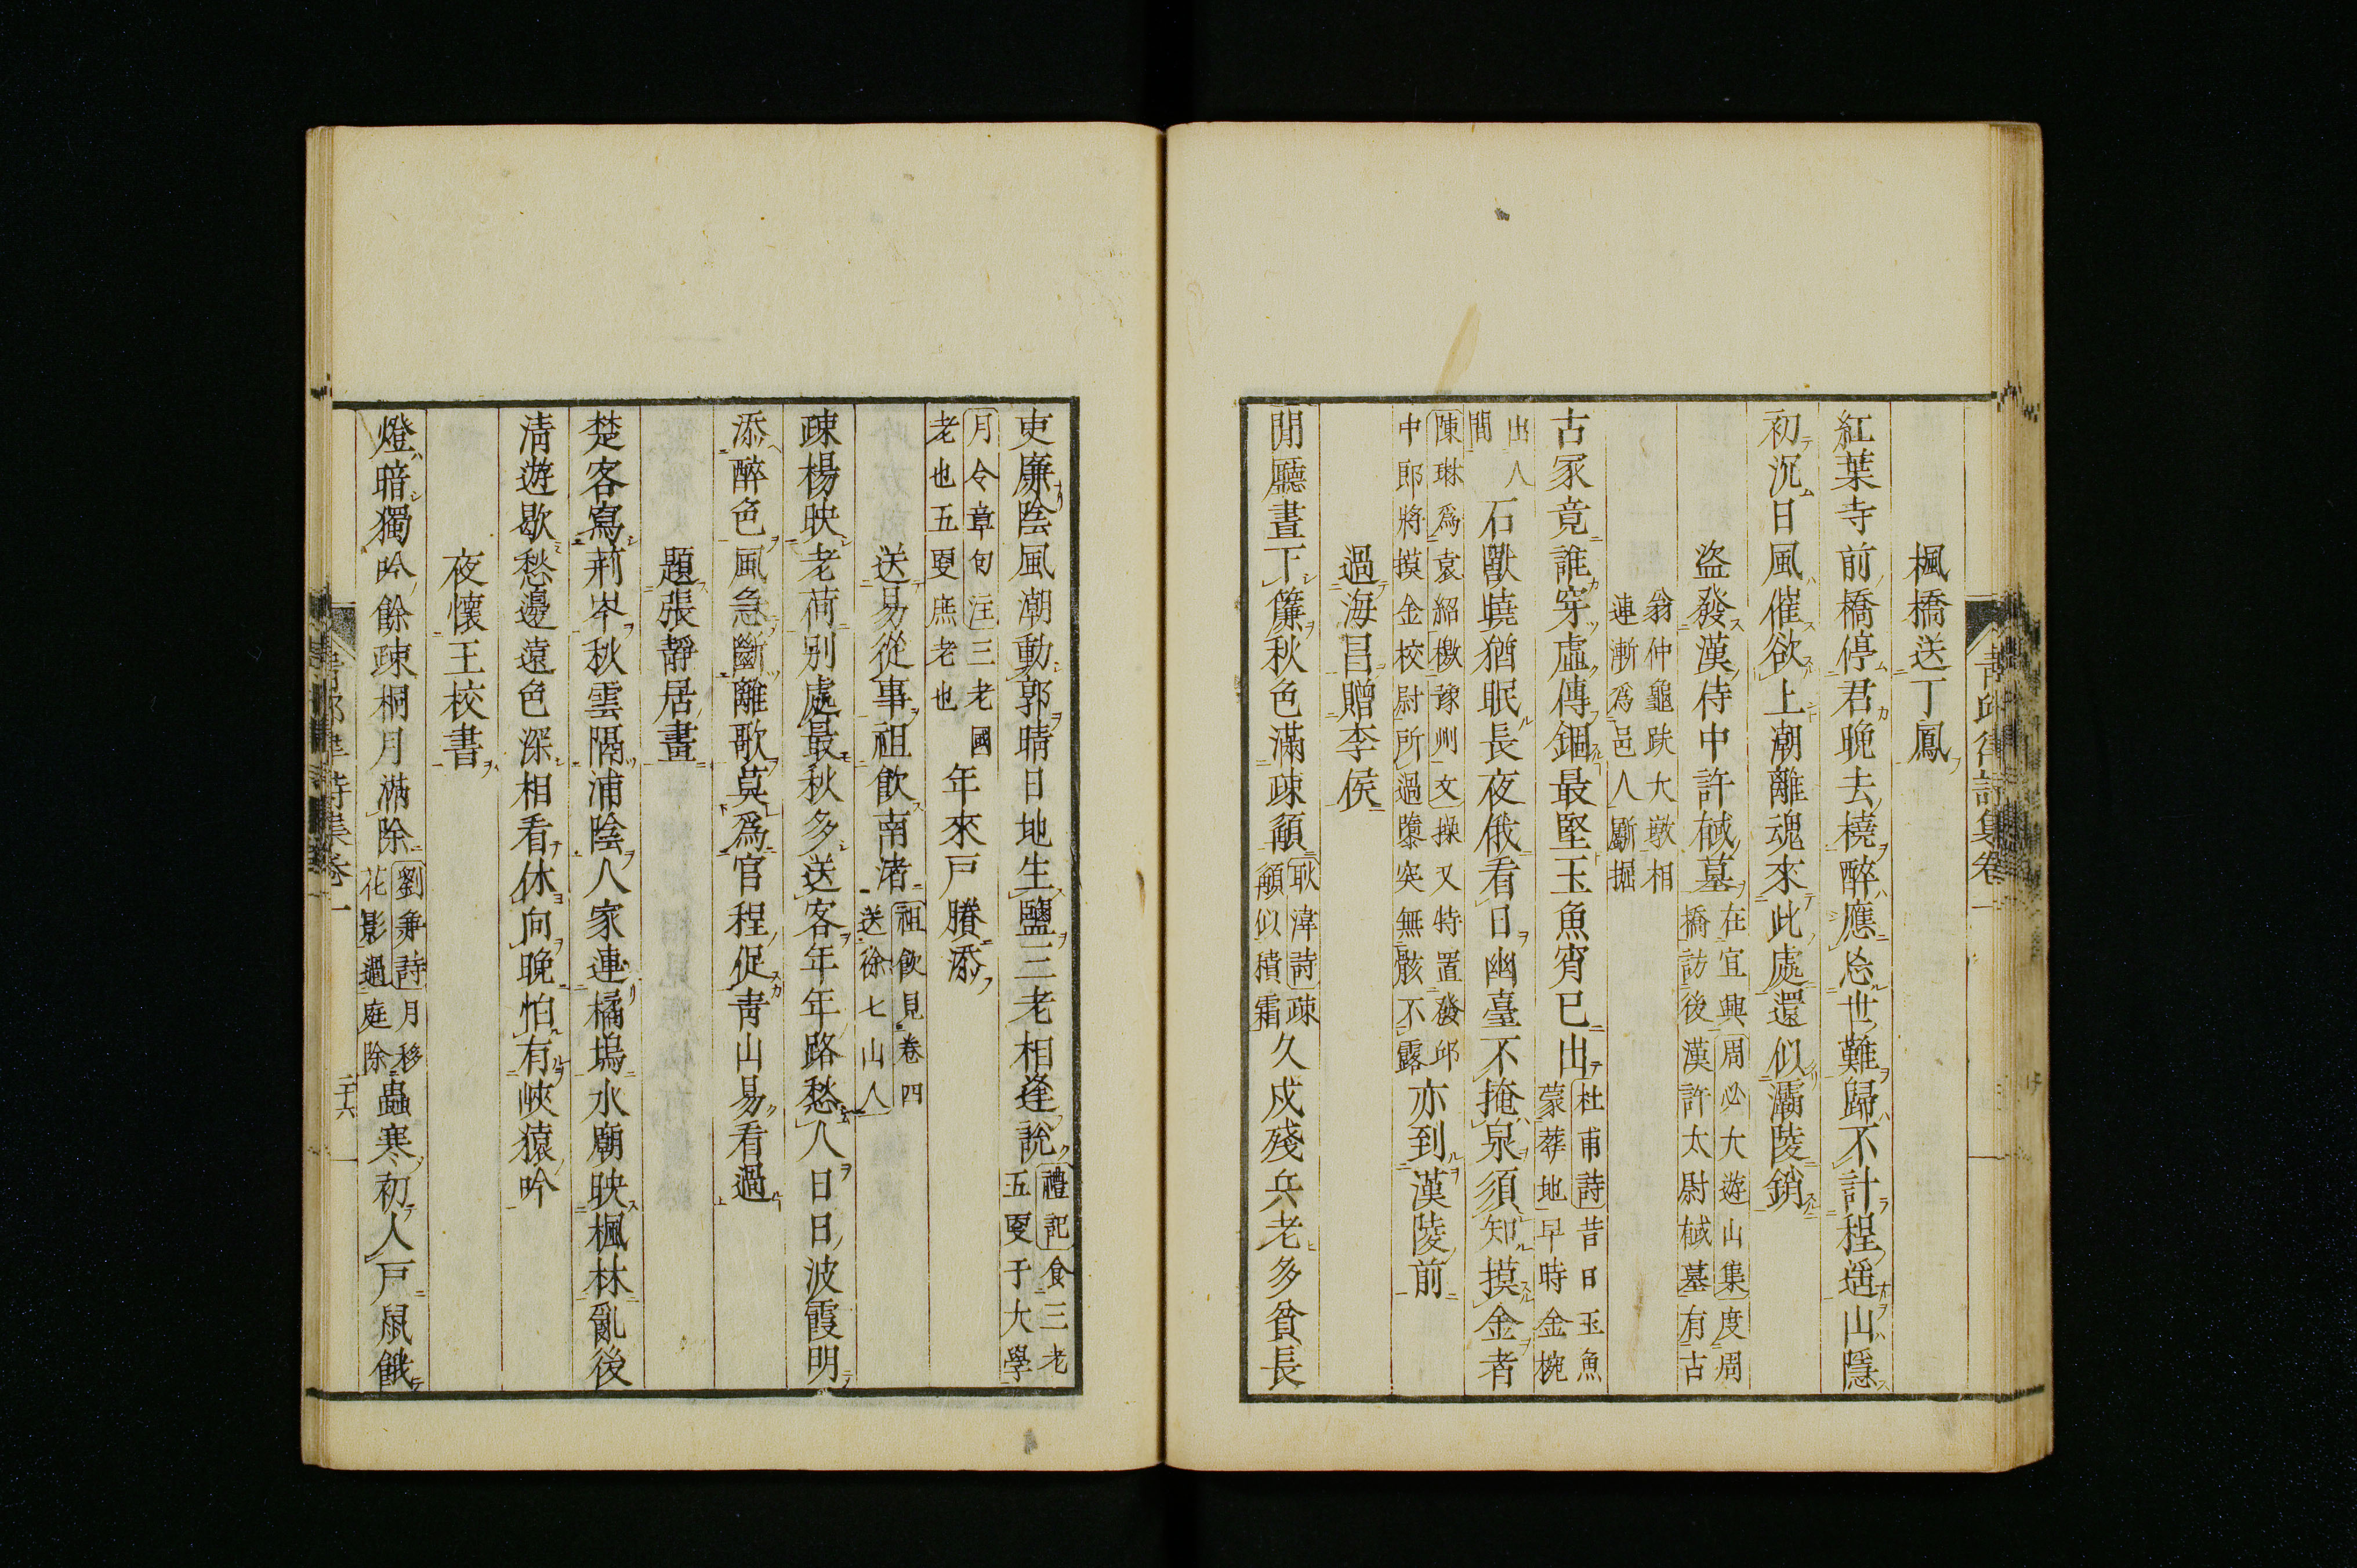 楓橋送丁鳳
紅葉寺前橋停君晩去橈醉應忩世難歸不計程遥山隱
初沉日風催欲上潮離魂來此處還似灞陵銷
盜發漢侍中許馘墓在宜興周必大遊山集度周
橋訪後漢許太尉馘墓有古
翁仲龜趺大墩相
連漸爲邑人斸掘
古冢竟誰穿虛傳錮最堅玉魚宵已出杜甫詩昔日玉魚
蒙葬地早時金椀
出人
間
石獸曉猶眠長夜俄看日幽臺不掩泉須知摸金者
陳琳爲袁紹檄豫州文操又特置發邱
中郎將摸金校尉所過隳突無骸不露
亦到漢陵前
過海昌贈李侯
閒廳晝下簾秋色滿疎顲耿湋詩疎
顲似積霜
久戍殘兵老多貧長
吏廉陰風潮動郭晴日地生鹽三老相逢說禮記食三老
五更于大學
月令章句注三老國
老也五更庶老也
年來戸賸添
送易從事祖飲南渚祖飲見卷四
送徐七山人
疎楊映老荷別處最秋多送客年年路愁人日日波霞明
添醉色風急斷離歌莫爲官程促靑山易看過
題張靜居畫
楚客寫荊岑秋雲隔浦陰人家連橘塢水廟映楓林亂後
淸遊歇愁邊遠色深相看休向晩怕有峽猿吟
夜懷王校書
燈暗獨吟餘疎桐月滿除劉兼詩月移
花影過庭除
蟲寒初人戸鼠餓
二十六